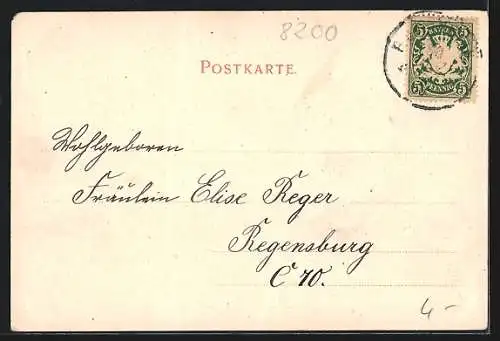 8200
5 BAYERN 5
5 PFENNIG 5
POSTKARTE.
Wohlgeboren
Fräulein Elise Reger
Regensburg
C 70.
4-